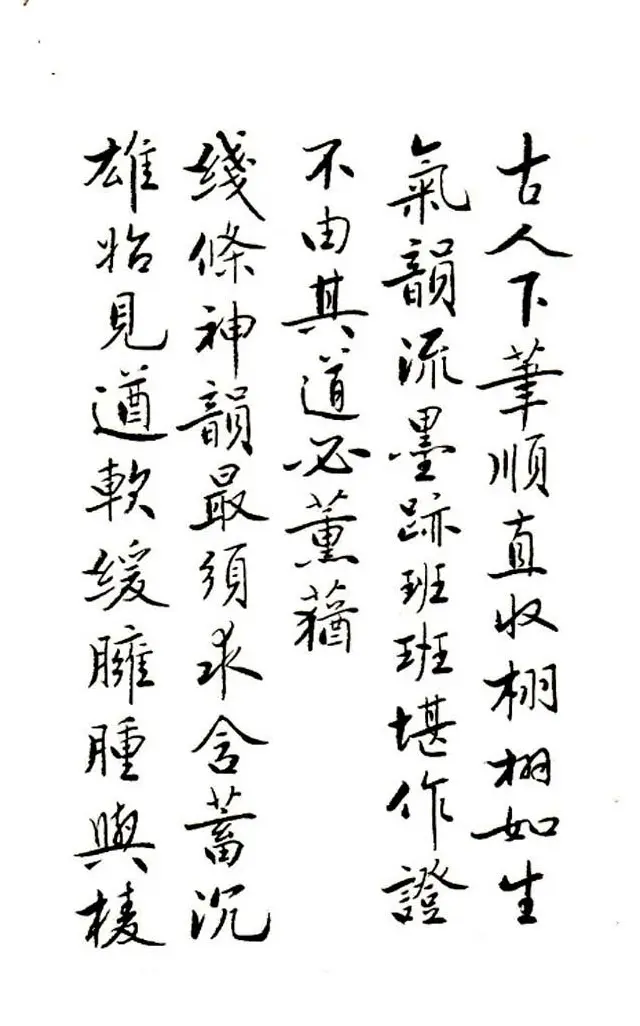 古人下筆順直收栩栩如生
氣韻流墨跡班班堪作證
不由其道必薰蕕
綫條神韻最須求含蓄沉
雄始見遒軟緩臃腫與棱